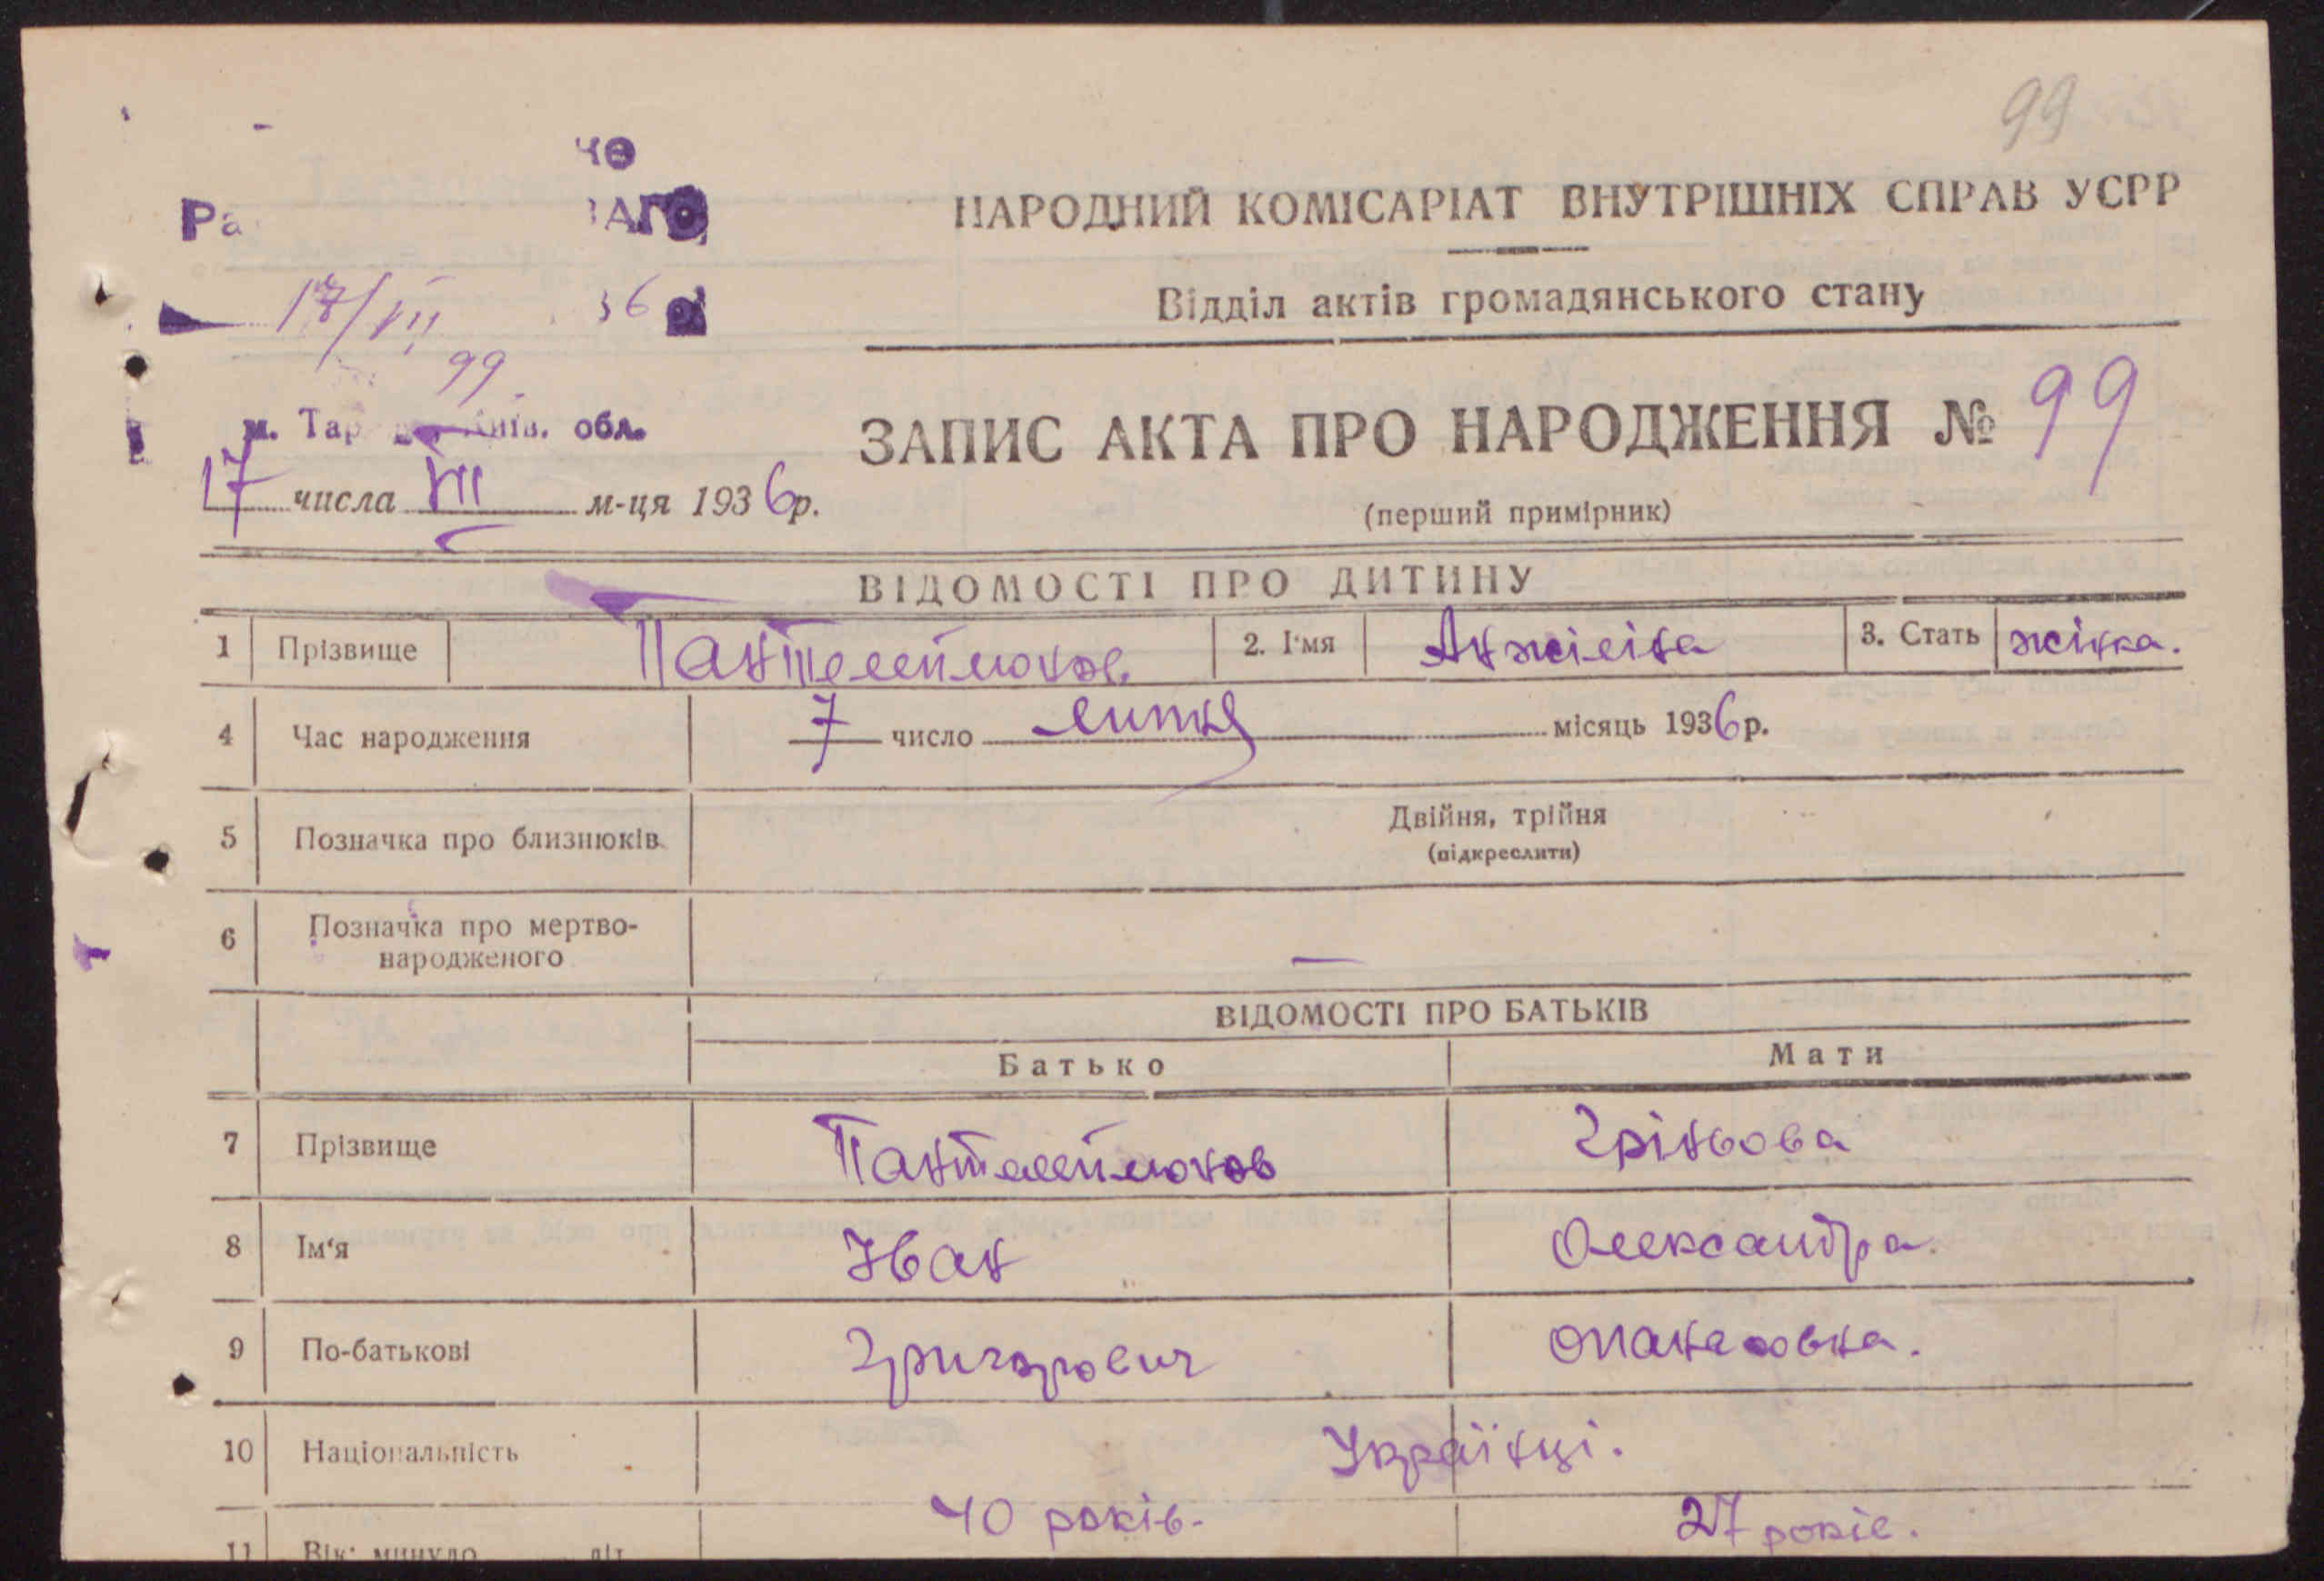 99
НАРОДНИЙ КОМІСАРІАТ ВНУТРІШНІХ СПРАВ УСРР
Відділ актів громадянського стану
17/VII 36
99
м. Тар Київ. обл.
ЗАПИС АКТА ПРО НАРОДЖЕННЯ № 99
17 числа VII м-ця 1936р.
(перший примірник)
ВІДОМОСТІ ПРО ДИТИНУ
1 Прізвище Пантелеймонов 2. І'мя Анжіліна 3. Стать жінка.
4 Час народження 7 число липня місяць 1936р.
5 Позначка про близнюків Двійня, трійня
(підкреслити)
6 Позначка про мертво-
народженого —
ВІДОМОСТІ ПРО БАТЬКІВ
Батько Мати
7 Прізвище Пантелеймонов Гріньова
8 Ім'я Іван Олександра.
9 По-батькові Григорович Опанасовна.
10 Національність Українці.
40 років. 27 років.
11 Вік: минуло літ